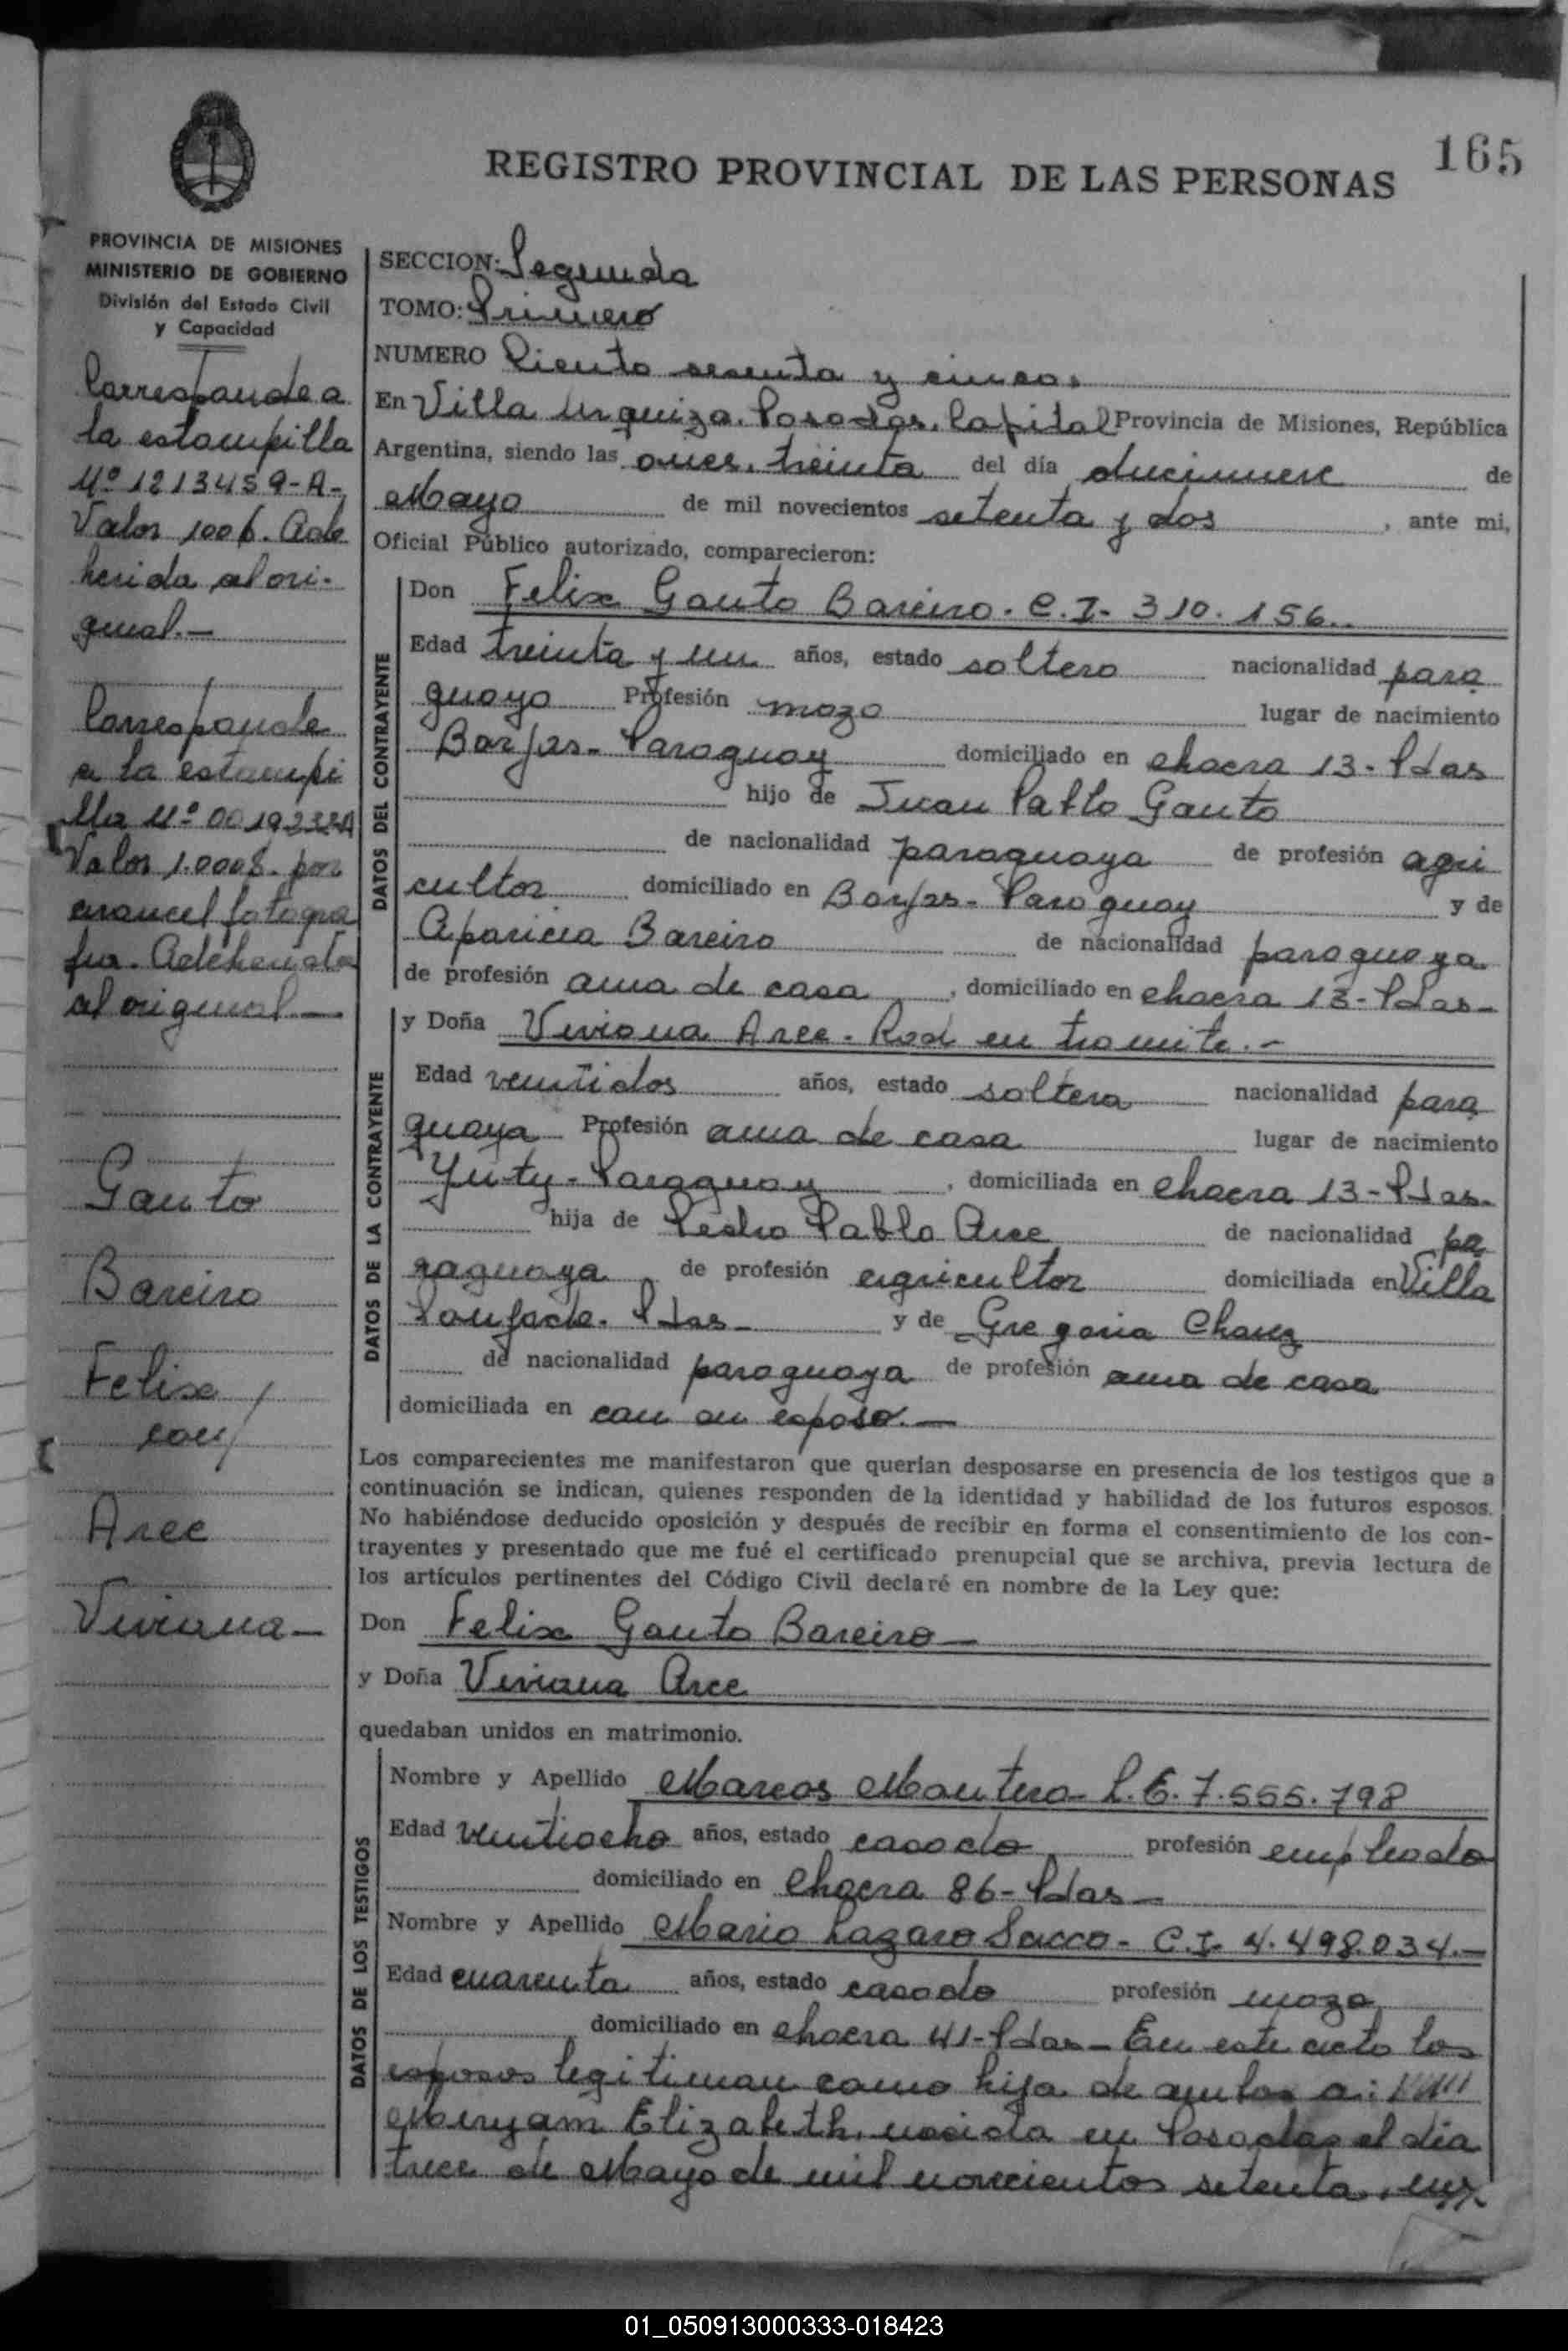 165
REGISTRO PROVINCIAL DE LAS PERSONAS
PROVINCIA DE MISIONES
MINISTERIO DE GOBIERNO
División del Estado Civil
y Capacidad
Corresponde a
la estampilla
Nº 1213459-A-
Valor 100 $. Adhe
herida al ori-
ginal.-
Corresponde
a la estampi
lla Nº
Valor 1.000$. por
arancel fotogra
fia. Adeherida
al original.-
Gauto
Bareiro
Felix
con/
Arce
Viviana-
SECCION: Segunda
TOMO: Primero
NUMERO Ciento sesenta y cinco.
En Villa Urquiza. Posadas. Capital Provincia de Misiones, República
Argentina, siendo las once, treinta del día diecinueve de
Mayo de mil novecientos setenta y dos, ante mi,
Oficial Público autorizado, comparecieron:
DATOS DEL CONTRAYENTE
Don Felix Gauto Bareiro. C.I. 310.156..
Edad treinta y un años, estado soltero nacionalidad para
guaya Profesión mozo lugar de nacimiento
Borjas- Paraguay domiciliado en chacra 13- Pdas
hijo de Juan Pablo Gauto
de nacionalidad paraguaya de profesión agri
cultor domiciliado en Borjas- Paraguay y de
Aparicia Bareiro de nacionalidad paraguaya
de profesión ama de casa, domiciliado en chacra 13- Pdas-
DATOS DE LA CONTRAYENTE
y Doña Viviana Arce. Rad en tramite.-
Edad veintidos años, estado soltera nacionalidad para
guaya Profesión ama de casa lugar de nacimiento
Yuty- Paraguay, domiciliada en chacra 13- Pdas.
hija de Pedro Pablo Arce de nacionalidad pa
raguaya de profesión agricultor domiciliada en Villa
Pdas- y de Gregoria Chavez
de nacionalidad paraguaya de profesión ama de casa
domiciliada en con su esposo.-
Los comparecientes me manifestaron que querían desposarse en presencia de los testigos que a
continuación se indican, quienes responden de la identidad y habilidad de los futuros esposos.
No habiéndose deducido oposición y después de recibir en forma el consentimiento de los con-
trayentes y presentado que me fué el certificado prenupcial que se archiva, previa lectura de
los artículos pertinentes del Código Civil declaré en nombre de la Ley que:
Don Felix Gauto Bareiro-
y Doña Viviana Arce
quedaban unidos en matrimonio.
DATOS DE LOS TESTIGOS
Nombre y Apellido Marcos Montero- L.E. 7.555.798
Edad veintiocho años, estado casado profesión empleado
domiciliado en Chacra 86- Pdas-
Nombre y Apellido Mario Lazaro Sacco- C.I. 4.498.034.-
Edad cuarenta años, estado casado profesión mozo
domiciliado en chacra 41- Pdas- En este acto los
esposos legitiman como hija de ambos a:
Miryam Elizabeth, nacida en Posadas el día
trece de Mayo de mil novecientos setenta,
01_050913000333-018423